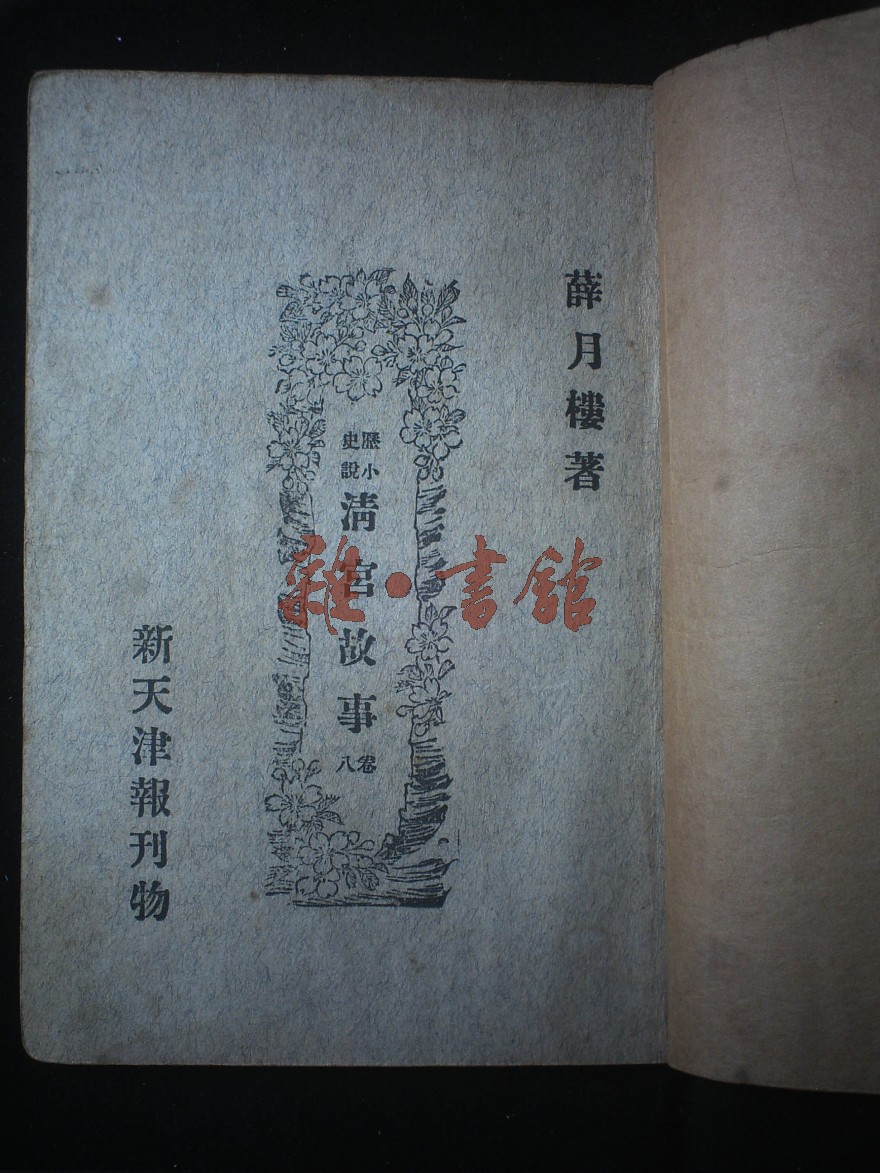 薛月樓著
歷史小說
清宮故事
卷八
新天津報刊物
雜·書館